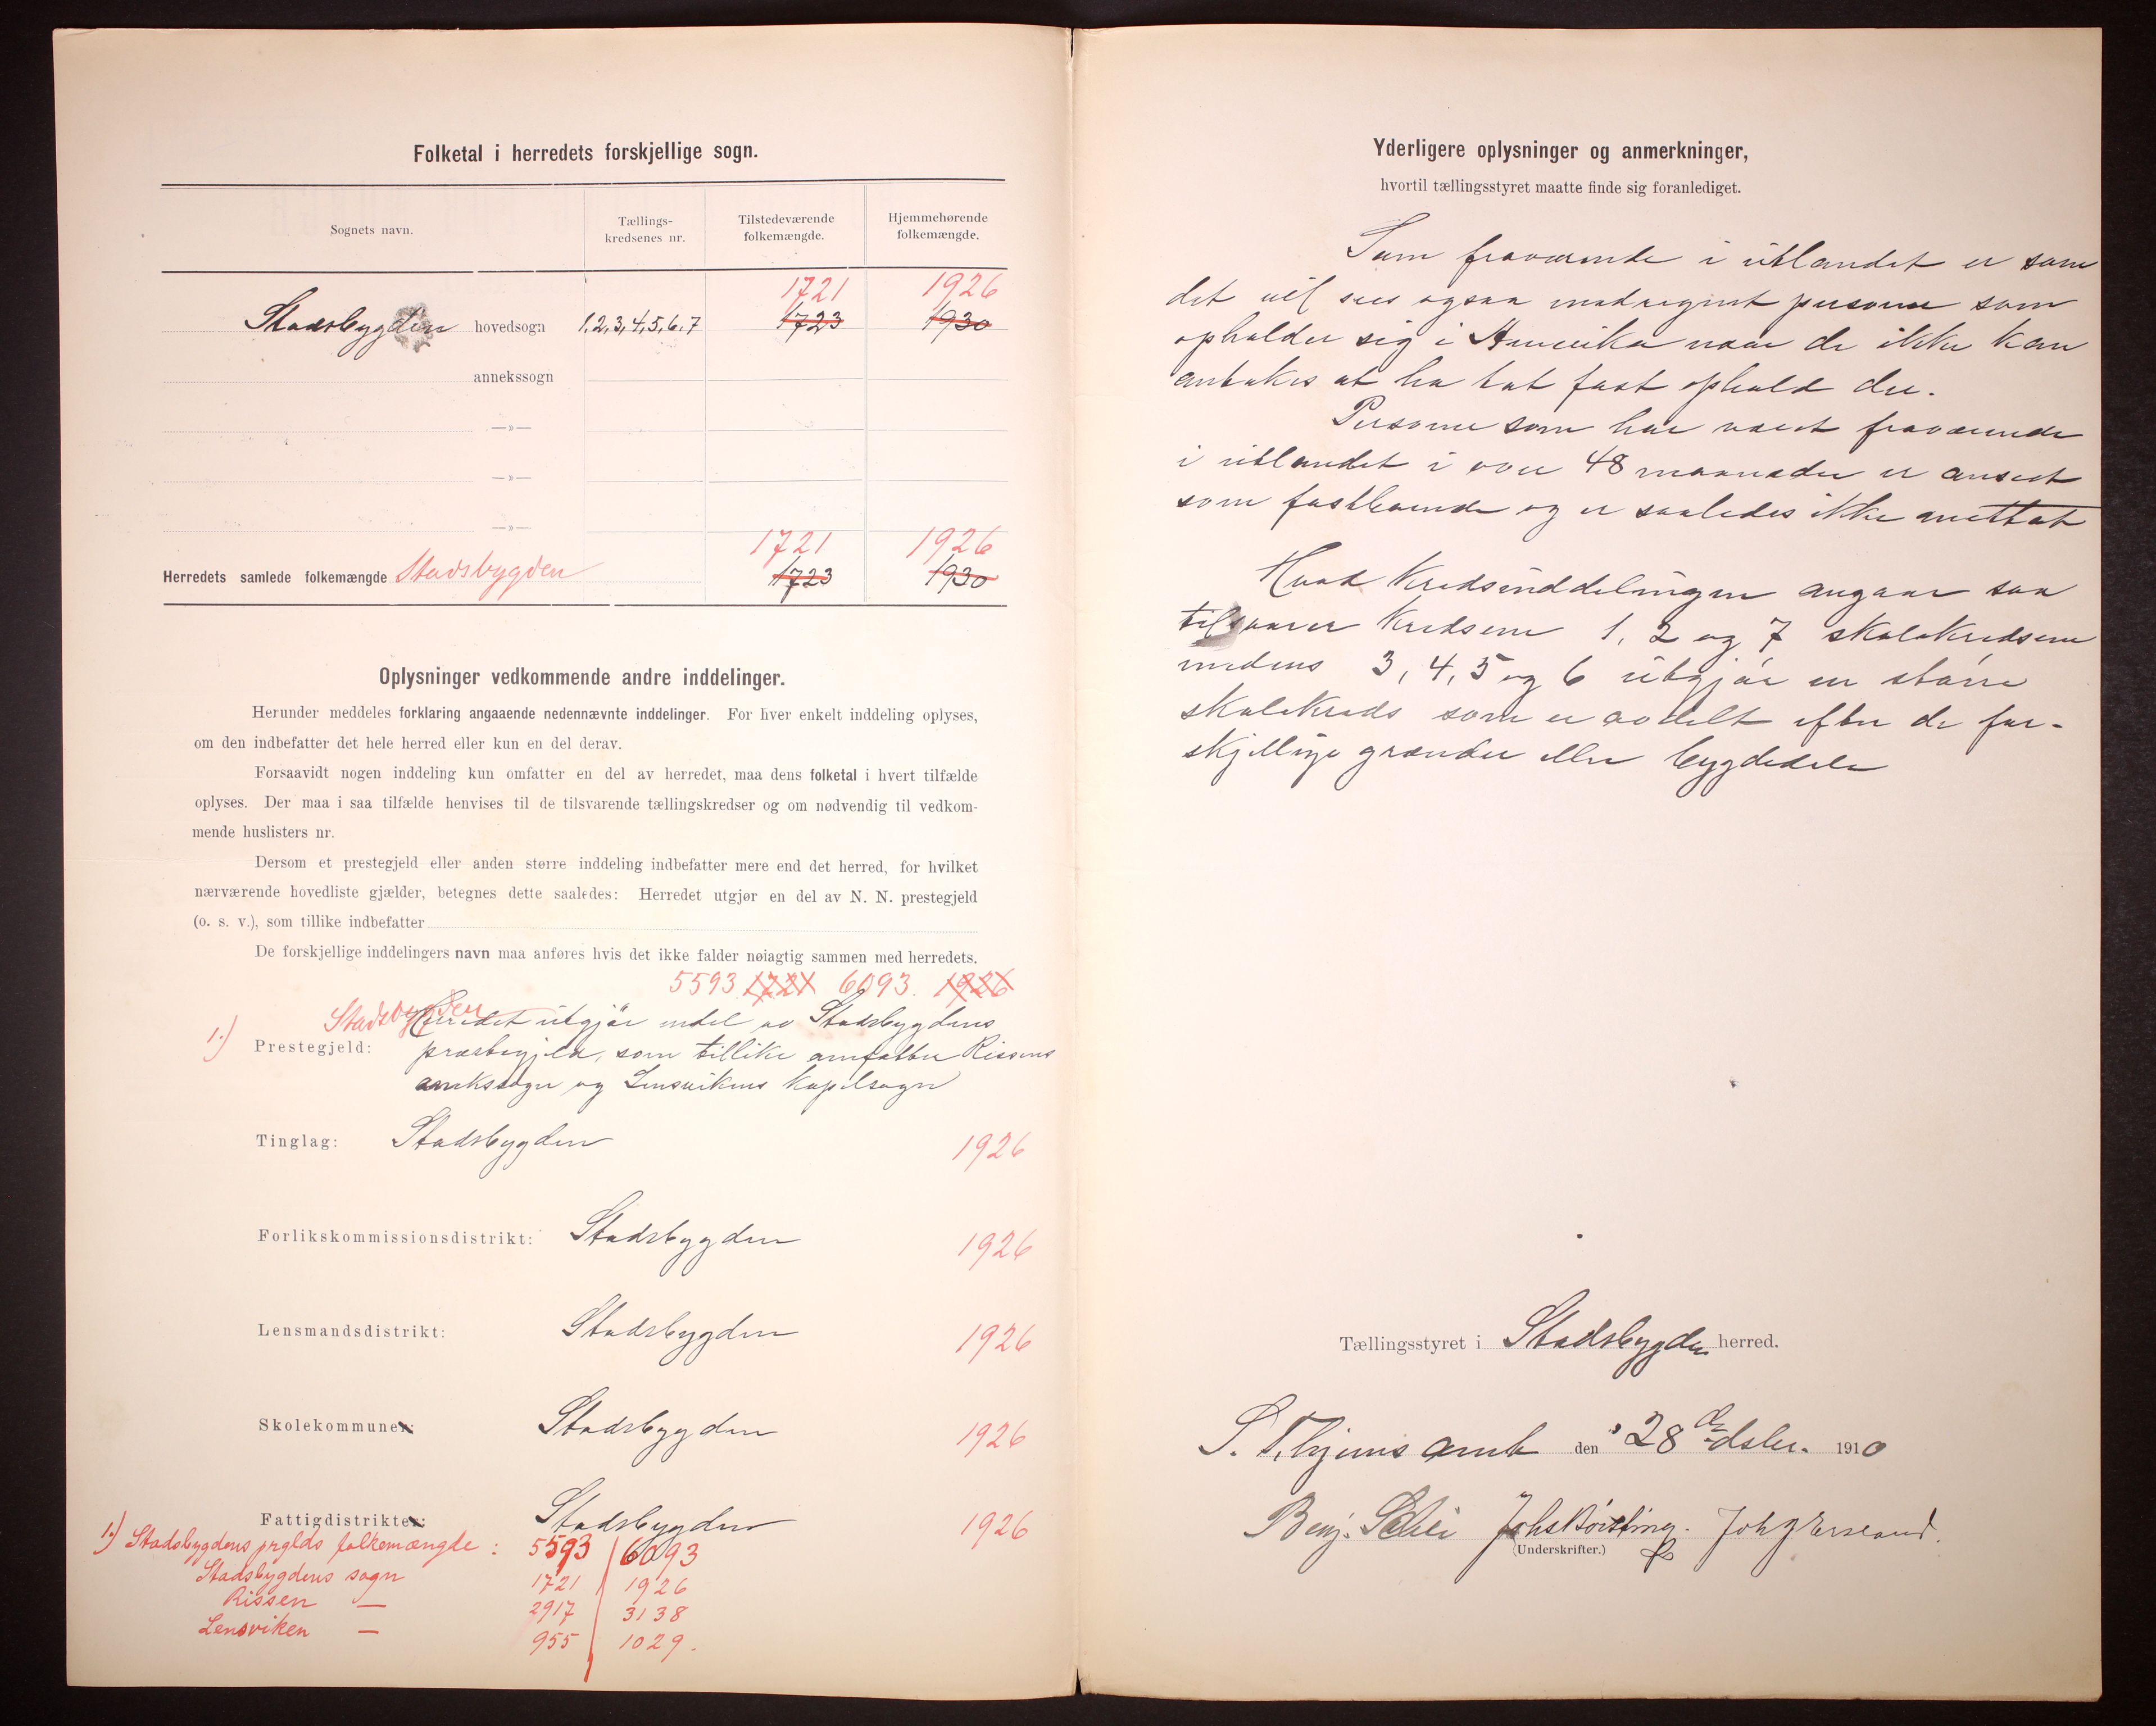 Folketal i herredets forskjellige sogn.
Sognets navn.
Tællings-
kredsenes nr.
Tilstedeværende
folkemængde.
Hjemmehørende
folkemængde.
1721 1926
Stadsbygden hovedsogn 1,2,3,4,5,6,7 1723 1930
annekssogn
—»—
—»—
—»—
1721 1926
Herredets samlede folkemængde Stadsbygden 1723 1930
Oplysninger vedkommende andre inddelinger.
Herunder meddeles forklaring angaaende nedennævnte inddelinger. For hver enkelt inddeling oplyses,
om den indbefatter det hele herred eller kun en del derav.
Forsaavidt nogen inddeling kun omfatter en del av herredet, maa dens folketal i hvert tilfælde
oplyses. Der maa i saa tilfælde henvises til de tilsvarende tællingskredser og om nødvendig til vedkom-
mende huslisters nr.
Dersom et prestegjeld eller anden større inddeling indbefatter mere end det herred, for hvilket
nærværende hovedliste gjælder, betegnes dette saaledes: Herredet utgjør en del av N. N. prestegjeld
(o. s. v.), som tillike indbefatter
De forskjellige inddelingers navn maa anføres hvis det ikke falder nøiagtig sammen med herredets.
5593 1721 6093. 1926
Stadsbygden Herredet utgjör endel av Stadsbygdens
1.) Prestegjeld: præstegjeld, som tillike omfatter Rissens
anekssogn og Lensvikens kapelsogn
Tinglag: Stadsbygden 1926
Forlikskommissionsdistrikt: Stadsbygden 1926
Lensmandsdistrikt: Stadsbygden 1926
Skolekommuner: Stadsbygden 1926
Fattigdistrikter: Stadsbygden 1926
1.) Stadsbygdens prglds folkemængde : 5593 6093
Stadsbygdens sogn 1721 1926
Rissen — 2917 3138
Lensviken — 955 1029.
Yderligere oplysninger og anmerkninger,
hvortil tællingsstyret maatte finde sig foranlediget.
Som fraværende i utlandet er som
det vil sees ogsaa medregnet personer som
opholder sig i Amerika naar de ikke kan
antakes at ha tat fast ophold der.
Personer som har været fraværende
i utlandet i over 48 maaneder er anseet
som fastboende og er saaledes ikke medtat
Hvad kredsinddelingen angaar saa
tilsvarer kredsene 1, 2 og 7 skolekredsene
medens 3, 4, 5 og 6 utgjör en större
skolekreds som er avdelt efter de for-
skjellige grænder eller bygdedele
Tællingsstyret i Stadsbygden herred.
S. Thjems amt den 28 de dsbr. 1910
Benj. Schei Johs
(Underskrifter.)